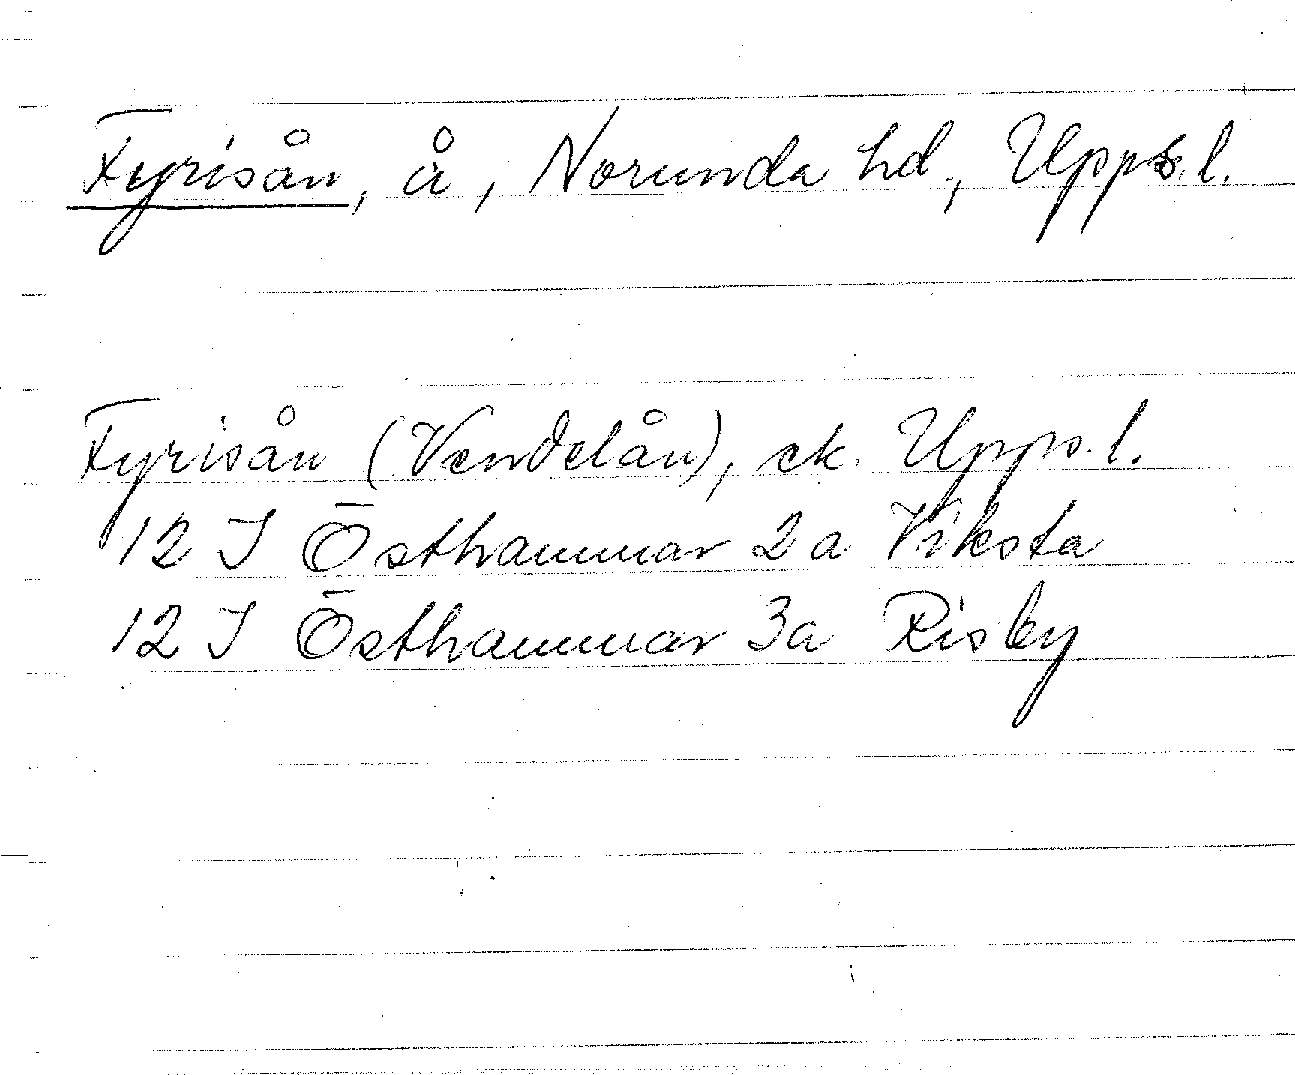 Fyrisån, å, Norunda hd, Upps.l.
Fyrisån (Vendelån), ek. Upps.l.
12 I Östhammar 2a Viksta
12 I Östhammar 3a Risby